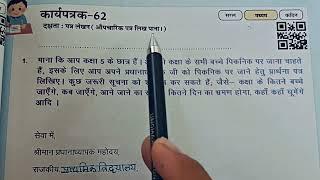 कार्यपत्रक-62
सरल मध्यम कठिन
दक्षता : पत्र लेखन ( औपचारिक पत्र लिख पाना।)
1. माना कि आप कक्षा 5 के छात्र हैं। आपकी कक्षा के सभी बच्चे पिकनिक पर जाना चाहते
हैं, इसके लिए आप अपने प्रधानाध्यापक जी को पिकनिक पर जाने हेतु प्रार्थना पत्र
लिखिए। कुछ जरूरी सूचना को शामिल कर सकते हैं, जैसे– कक्षा के कितने बच्चे
जाएँगे, कब जाएँगे, आने जाने का कितने दिन का भ्रमण होगा, कहाँ कहाँ घूमेंगे
आदि ।
सेवा में,
श्रीमान प्रधानाध्यापक महोदय,
राजकीय प्राथमिक विद्यालय,